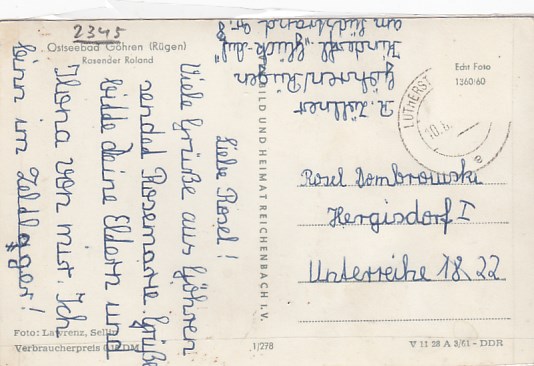 2345
Ostseebad Göhren (Rügen)
Rasender Roland
Liebe Rosel!
Viele Grüße aus Göhren
sendet Rosemarie. Grüße
bitte deine Eltern und
Ilona von mir. Ich
binn im Zeldlager!
R. Zöllner
Göhren/Rügen
Kinderfl. "Glück-Auf"
am Südstrand Nr. 8
BILD UND HEIMAT REICHENBACH I. V.
Echt Foto
1360/60
LUTHERST
10.
e
Rosel Dombrowsky
Hergisdorf I
Unterreihe 18 22
Foto: Lawrenz, Sellin
Verbraucherpreis DM
1/278
V 11 28 A 3/61 - DDR